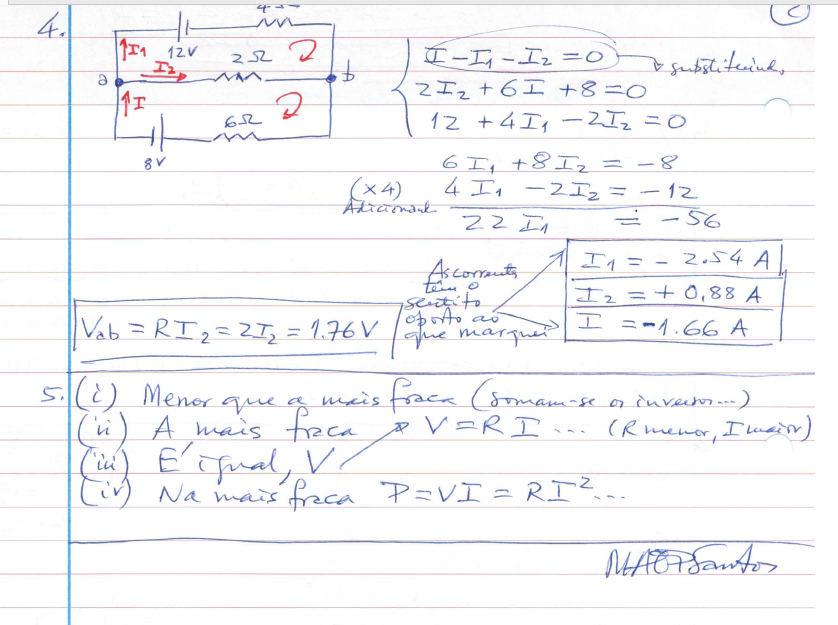 4.
(2)
4Ω
12V
I1
I2
2Ω
a
b
I
6Ω
8V
I - I1 - I2 = 0 → substituindo
2I2 + 6I + 8 = 0
12 + 4I1 - 2I2 = 0
6I1 + 8I2 = -8
(×4) 4I1 - 2I2 = -12
Adicionand
22 I1 = -56
As correntes
têm o
sentido
oposto ao
que marquei
I1 = - 2.54 A
I2 = + 0,88 A
I = -1.66 A
Vab = RI2 = 2I2 = 1.76V
5. (i) Menor que a mais fraca (somam-se os inversos...)
(ii) A mais fraca V = R I ... (R menor, I maior)
(iii) É igual, V
(iv) Na mais fraca P=VI = RI²...